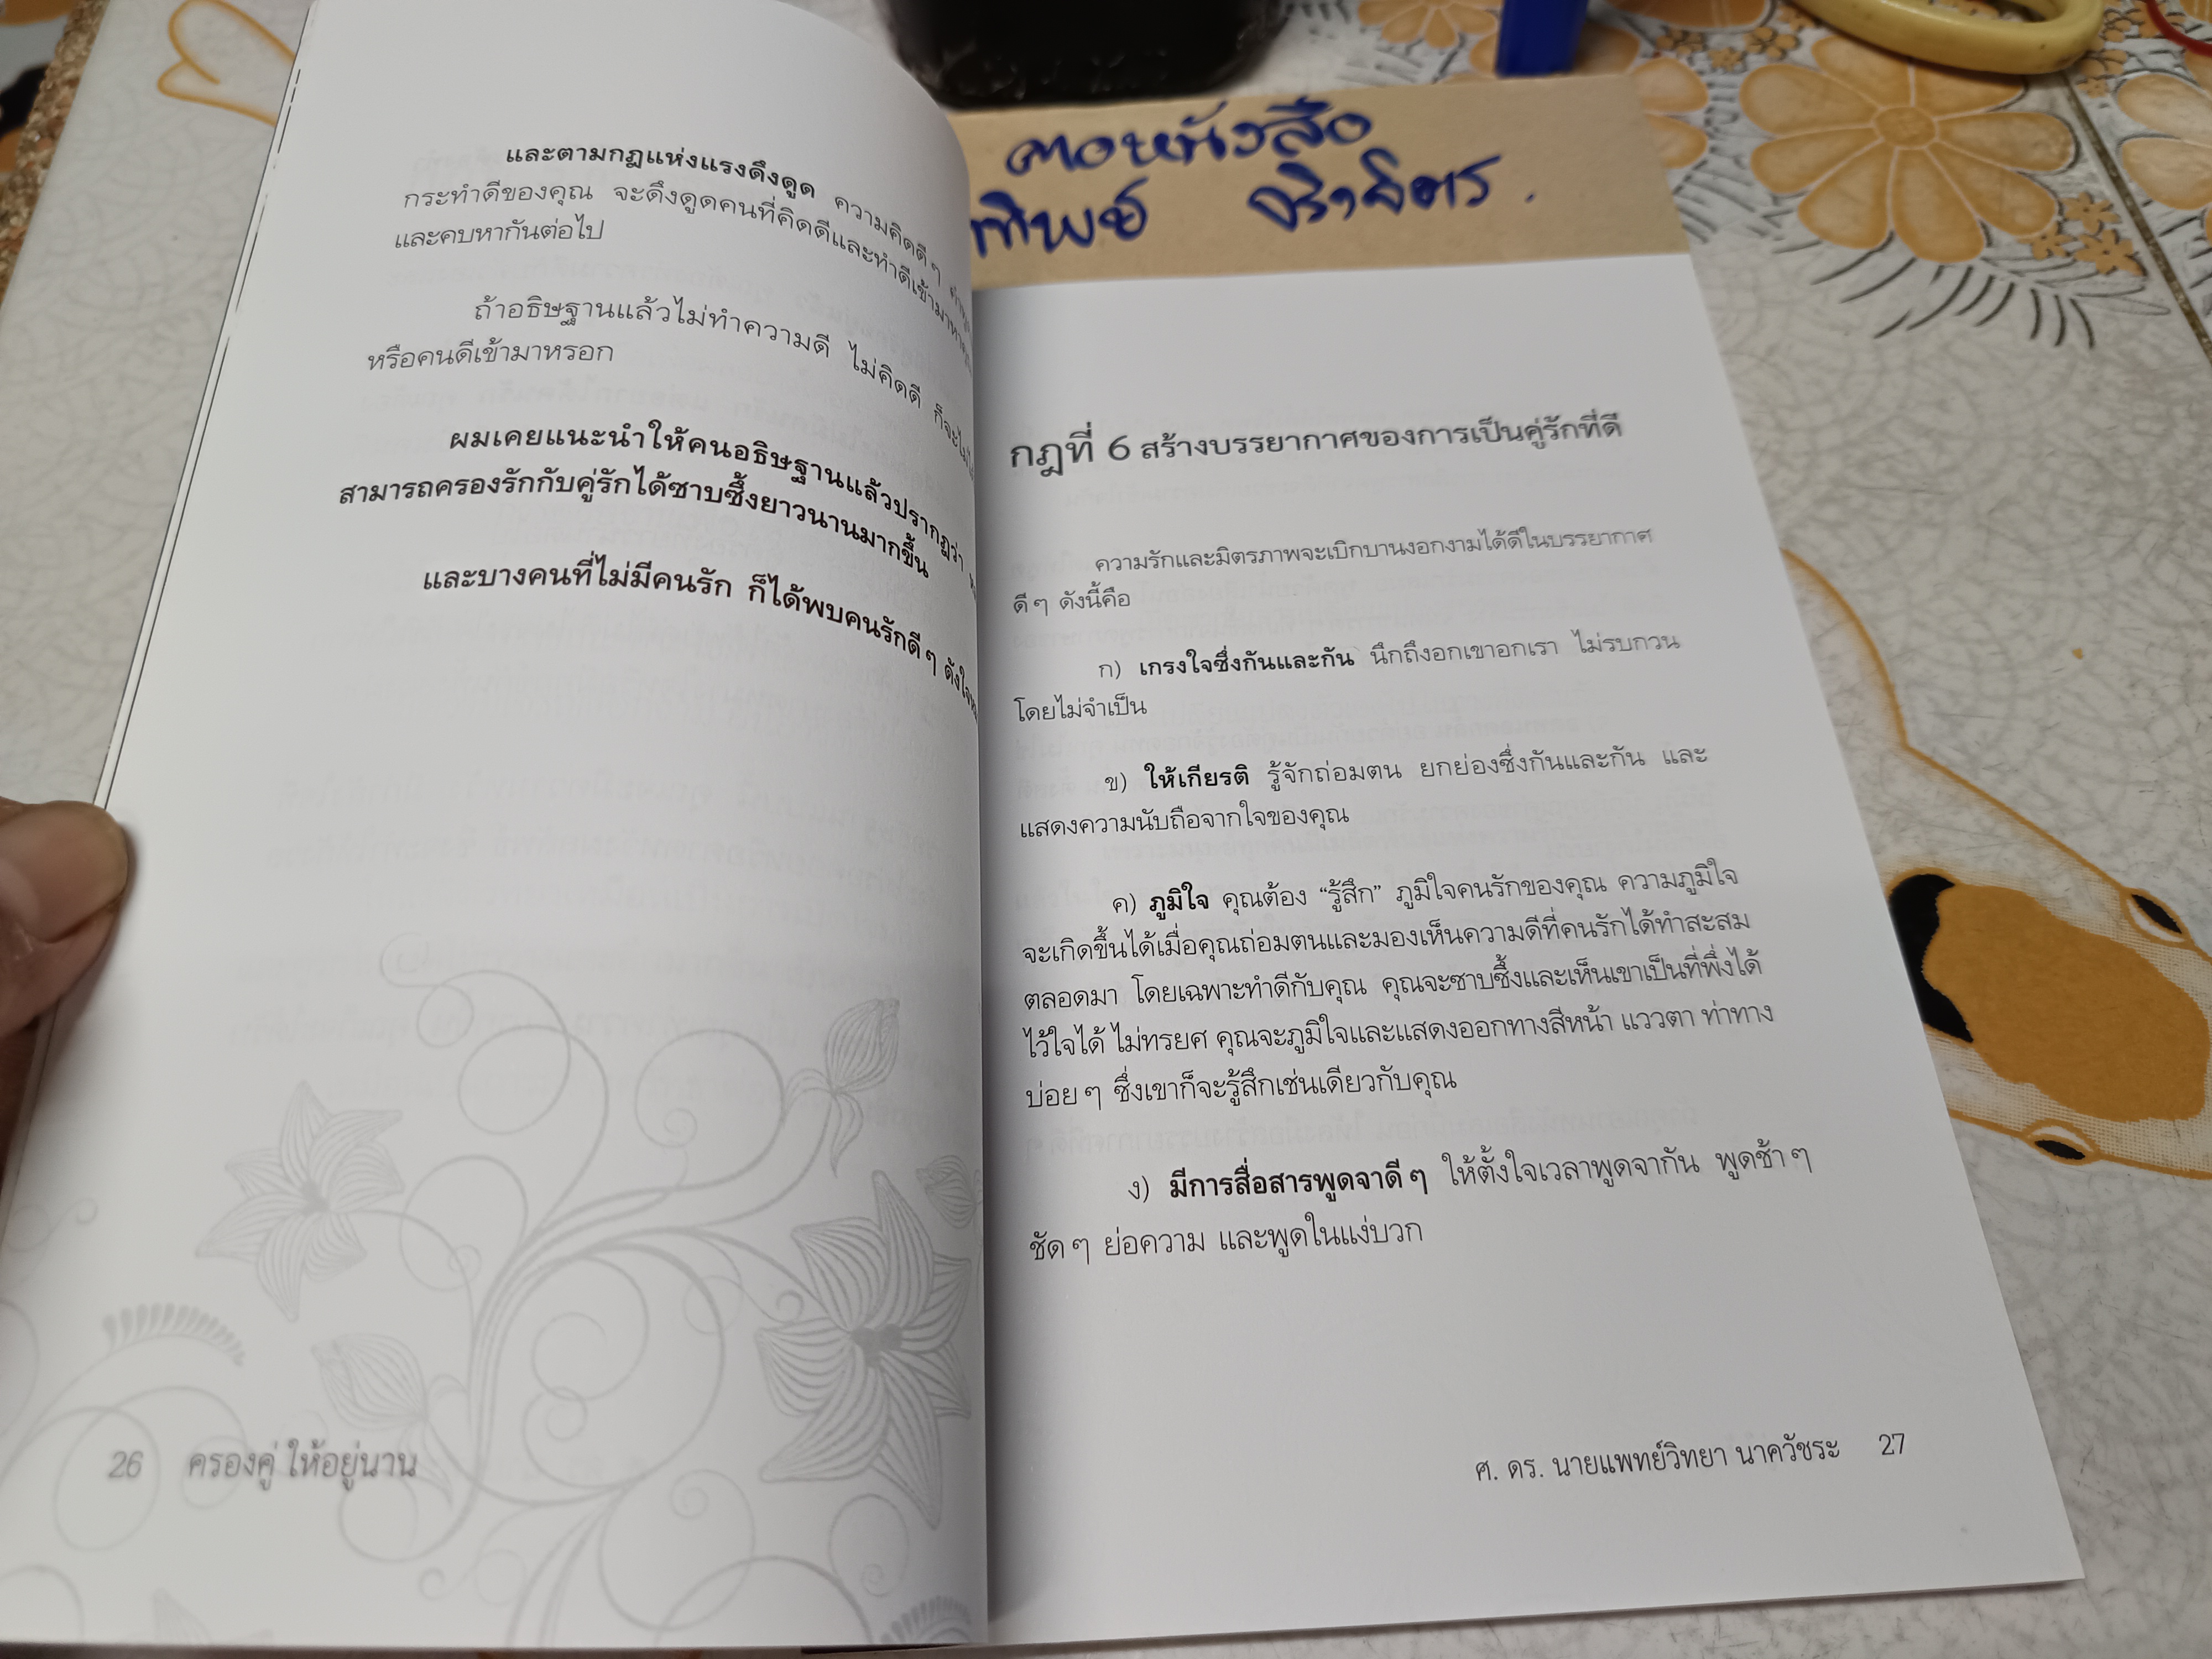 และตามกฎแห่งแรงดึงดูด ความคิดดี ๆ
กระทำดีของคุณ จะดึงดูดคนที่คิดดีและทำดีเข้ามาหา
และคบหากันต่อไป
ถ้าอธิษฐานแล้วไม่ทำความดี ไม่คิดดี ก็จะไม่
หรือคนดีเข้ามาหรอก
ผมเคยแนะนำให้คนอธิษฐานแล้วปรากฏว่า
สามารถครองรักกับคู่รักได้ซาบซึ้งยาวนานมากขึ้น
และบางคนที่ไม่มีคนรัก ก็ได้พบคนรักดี ๆ ดังใจ
26 ครองคู่ ให้อยู่นาน
หนังสือ
กฎที่ 6 สร้างบรรยากาศของการเป็นคู่รักที่ดี
ความรักและมิตรภาพจะเบิกบานงอกงามได้ดีในบรรยากาศ
ดี ๆ ดังนี้คือ
ก) เกรงใจซึ่งกันและกัน นึกถึงอกเขาอกเรา ไม่รบกวน
โดยไม่จำเป็น
ข) ให้เกียรติ รู้จักถ่อมตน ยกย่องซึ่งกันและกัน และ
แสดงความนับถือจากใจของคุณ
ค) ภูมิใจ คุณต้อง “รู้สึก” ภูมิใจคนรักของคุณ ความภูมิใจ
จะเกิดขึ้นได้เมื่อคุณถ่อมตนและมองเห็นความดีที่คนรักได้ทำสะสม
ตลอดมา โดยเฉพาะทำดีกับคุณ คุณจะซาบซึ้งและเห็นเขาเป็นที่พึ่งได้
ไว้ใจได้ ไม่ทรยศ คุณจะภูมิใจและแสดงออกทางสีหน้า แววตา ท่าทาง
บ่อย ๆ ซึ่งเขาก็จะรู้สึกเช่นเดียวกับคุณ
ง) มีการสื่อสารพูดจาดี ๆ ให้ตั้งใจเวลาพูดจากัน พูดช้า ๆ
ชัด ๆ ย่อความ และพูดในแง่บวก
ศ. ดร. นายแพทย์วิทยา นาควัชระ 27